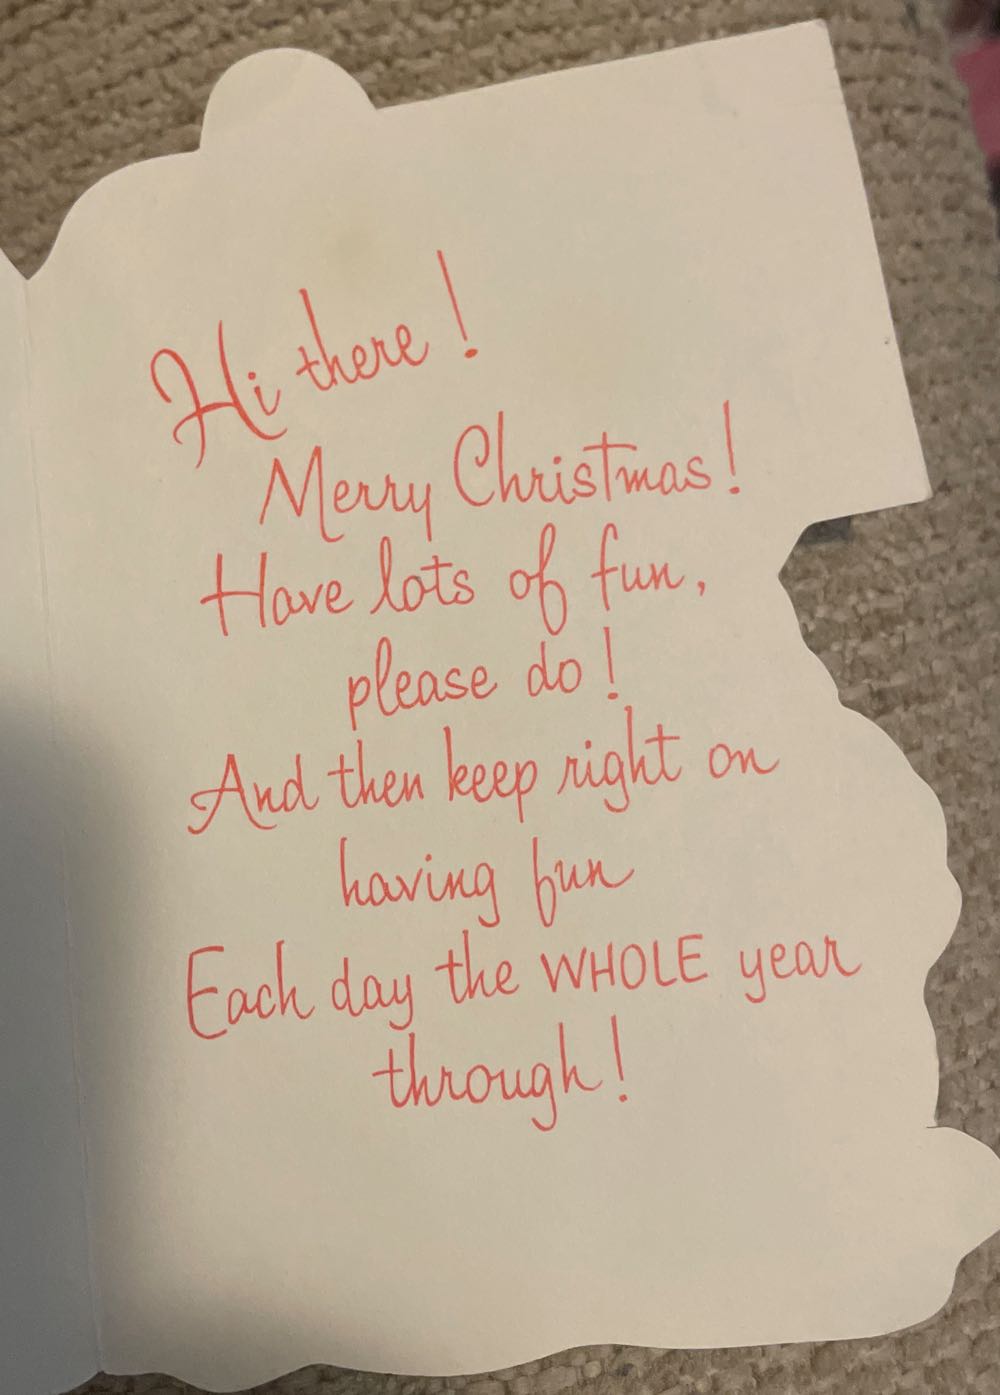 Hi there!
Merry Christmas!
Have lots of fun,
please do!
And then keep right on
having fun
Each day the WHOLE year
through!